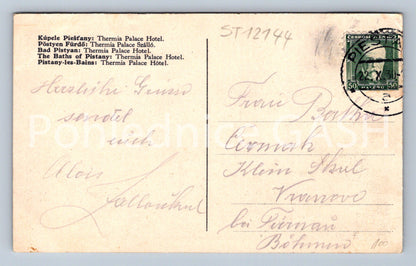 Kúpele Piešťany: Thermia Palace Hotel.
Pöstyen Fürdő: Thermia Palace Szálló.
Bad Pistyan: Thermia Palace Hotel.
The Baths of Pistany: Thermia Palace Hotel.
Pistany-les-Bains: Thermia Palace Hôtel.
ST 12144
Herzliche Grüsse
sendet
euch
Alois
Frau
Čermak
Klein Skal
Vranove
bei Turnau
Böhmen
50 50